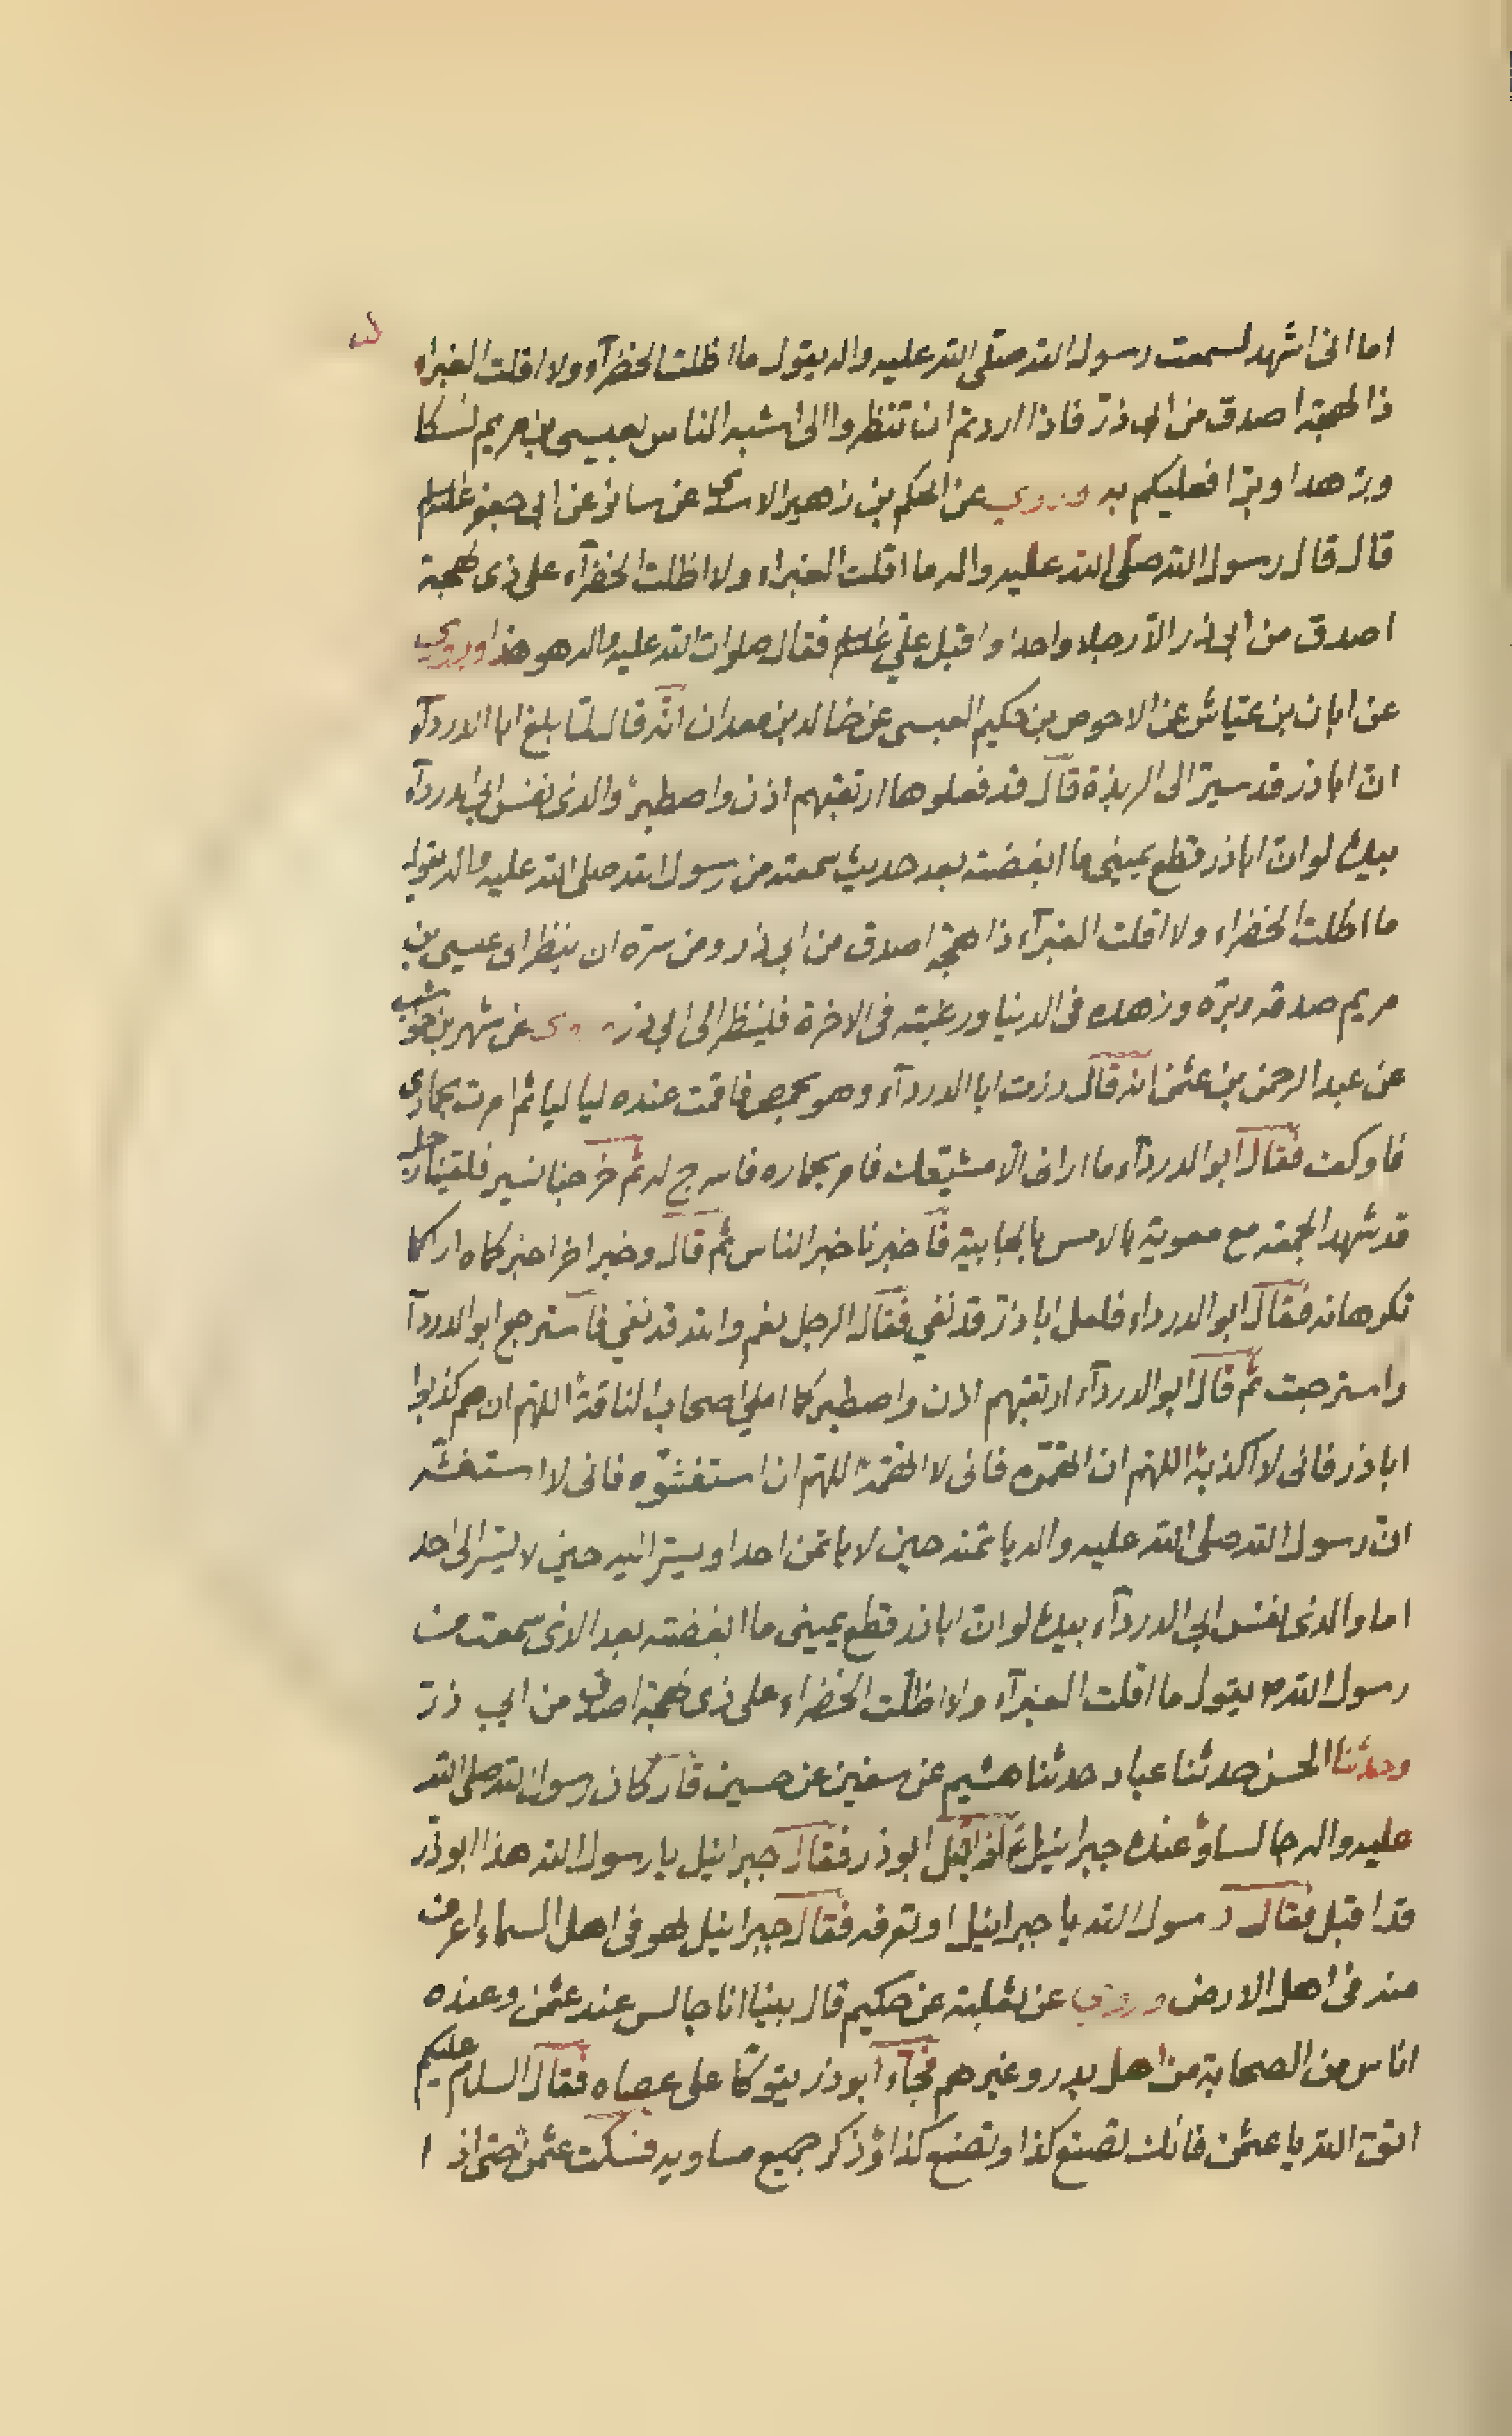 اما انی اشهد لسمعت رسول الله صلی الله علیه واله یقول ما اظلت الخضرآء ولا اقلت الغبرآء
ذا لهجة اصدق من ابی ذرّ فاذا اردتم ان تنظروا الی اشبه الناس بعیسی بن مریم نسکا
وزهدا وبرّا فعلیکم به وروی عن الحکم بن زهیر الاسدی عن ابی جعفر علیه السلم
قال قال رسول الله صلّی الله علیه واله ما اقلت الغبراء ولا اظلت الخضرآء علی ذی لهجة
اصدق من ابی ذر الّا رجلا واحدا واقبل علیّ علیه السلم فقال صلوات الله علیه واله هو هذا وروی
عن ابان بن عیّاش عن الاحوص بن حکیم العبسی عن خالد بن معدان انّه قال لمّا بلغ ابا الدردآء
انّ اباذر قد سیّر الی الربذة قال قد فعلوها ارتقبهم اذن واصطبر والذی نفس ابی الدردآء
بیده لو انّ اباذر قطع یمینی ما ابغضته بعد حدیث سمعته من رسول الله صلی الله علیه واله یقول
ما اظلت الخضراء ولا اقلت الغبرآء ذا لهجة اصدق من ابی ذر ومن سرّه ان ینظر الی عیسی بن
مریم صدقه وبرّه وزهده فی الدنیا ورغبته فی الاخرة فلینظر الی ابی ذر وروی عن شهر بن حوشب
عن عبد الرحمن بن عثمن انه قال زرت ابا الدردآء وهو بحمص فاقمت عنده لیالیا ثم امرت بحماری
فاوکف فقال ابو الدردآء ما ارانی الّا مشیّعک فامر بحماره فاسرج له ثم خرجنا نسیر فلقینا رجل
قد شهد الجمعة مع معویة بالامس بالجابیة فاخبرنا خبر الناس ثم قال وخبر اخر اخبرکماه اراکما
تکرهانه فقال ابو الدرداء فلعل اباذرّ قد نفی فقال الرجل نعم والله قد نفی فاسترجع ابو الدردآء
واسترجعت ثم قال ابو الدردآء ارتقبهم اذن واصطبر کما اصحاب الناقة اللهّم ان هم کذبوا
اباذر فانی لا اکذبه اللهّم ان اتهموه فانی لا اتهمه اللهم ان استغشّوه فانی لا استغشّه
انّ رسول الله صلی الله علیه واله یاتمنه حین لا یاتمن احدا ویسرّ الیه حین لا یسّر الی احد
اما والذی نفس ابی الدردآء بیده لو انّ اباذر قطع یمینی ما ابغضته بعد الذی سمعت من
رسول الله ص یقول ما اقلت الغبرآء ولا اظلّت الخضراء علی ذی لهجة اصدق من ابی ذرّ
وحدّثنا الحسن حدثنا عباد حدثنا هشیم عن سفین عن حسین قال کان رسول الله صلی الله
علیه واله جالسا وعنده جبرائیل ع اذ اقبل ابو ذر فقال جبرائیل یا رسول الله هذا ابو ذرّ
قد اقبل فقال رسول الله یا جبرائیل اوتعرفه فقال جبرائیل لهو فی اهل السماء اعرف
منه فی اهل الارض وروی عن ثعلبة عن حکیم قال بینا انا جالس عند عثمن وعنده
اناس من الصحابة من اهل بدر وغیرهم فجآء ابوذر یتوکّا علی عصاه فقال السلام علیکم
اتق الله یا عثمن فانک تصنع کذا وتصنع کذا وذکر جمیع مساویه فسکت عثمن حتی اذا